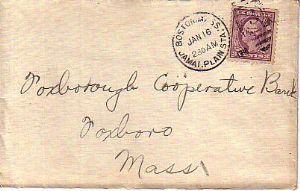 BOSTON, MASS.
JAN 16
2 30 AM
JAMAI. PLAIN STA.
Foxborough Cooperative Bank
Foxboro
Mass